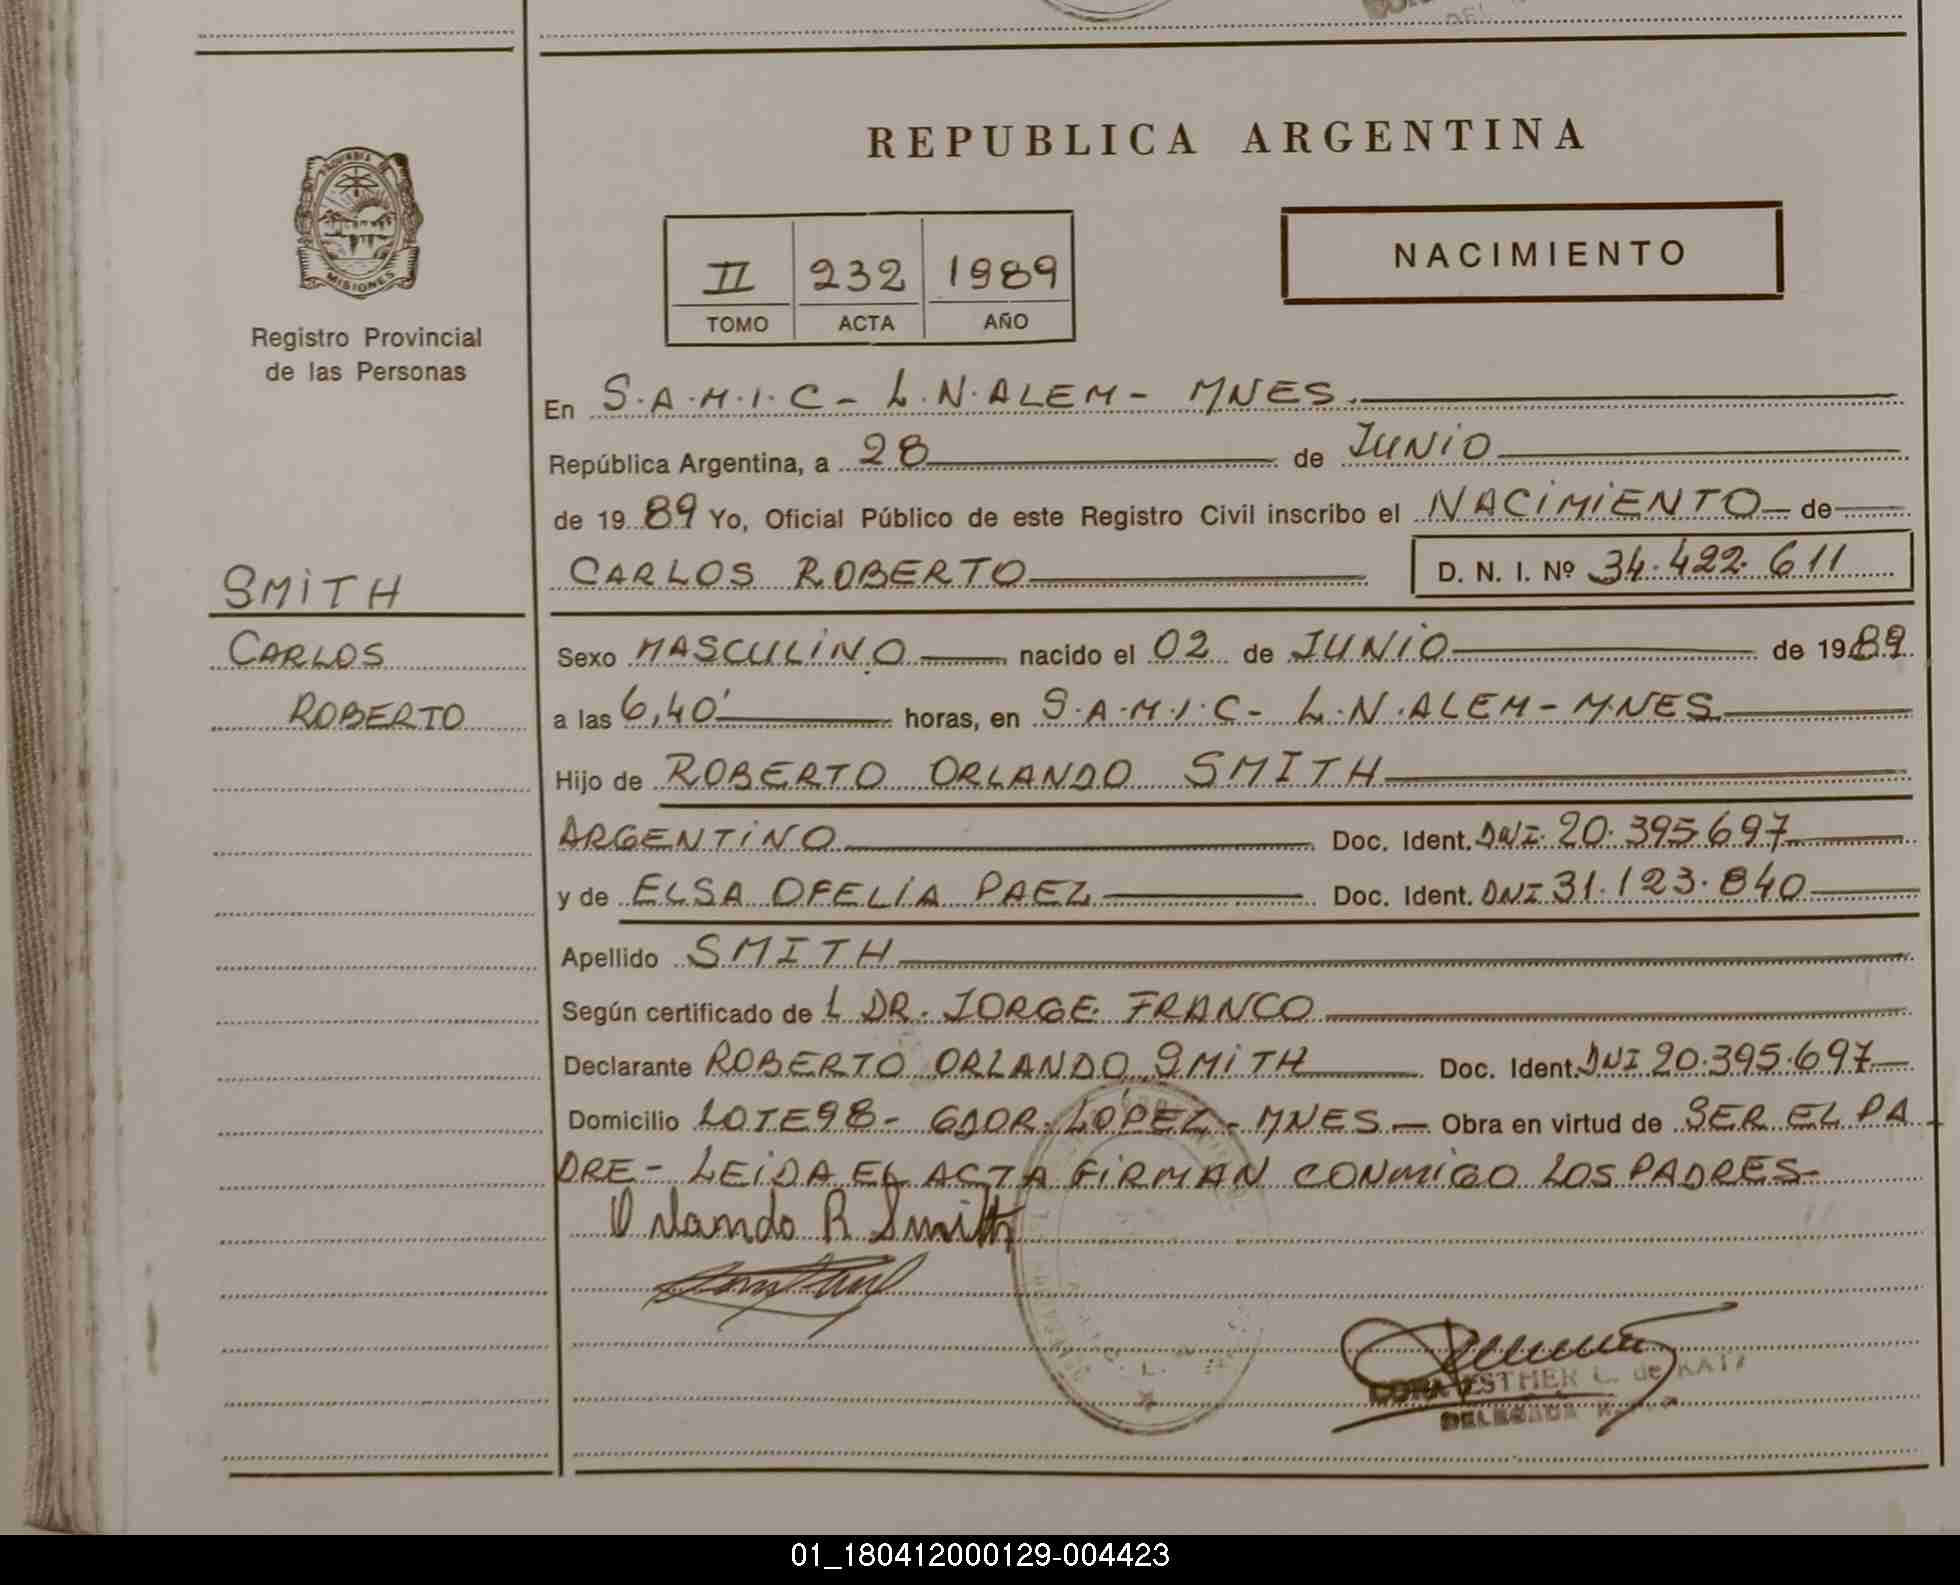 REPUBLICA ARGENTINA
MISIONES
Registro Provincial
de las Personas
II 232 1989
TOMO ACTA AÑO
NACIMIENTO
En S.A.M.I.C - L.N.ALEM - MNES.
República Argentina, a 28 de JUNIO
de 1989 Yo, Oficial Público de este Registro Civil inscribo el NACIMIENTO de
CARLOS ROBERTO D. N. I. Nº 34.422.611
SMITH
CARLOS
ROBERTO
Sexo MASCULINO nacido el 02 de JUNIO de 1989
a las 6,40' horas, en S.A.M.I.C - L.N.ALEM - MNES
Hijo de ROBERTO ORLANDO SMITH
ARGENTINO Doc. Ident. DNI. 20.395.697
y de ELSA OFELIA PAEZ Doc. Ident. DNI 31.123.840
Apellido SMITH
Según certificado de L DR. JORGE FRANCO
Declarante ROBERTO ORLANDO SMITH Doc. Ident. DNI 20.395.697
Domicilio LOTE 98 - GDOR. LÓPEZ - MNES - Obra en virtud de SER EL PA
DRE - LEIDA EL ACTA FIRMAN CONMIGO LOS PADRES -
Orlando R Smith
ESTHER C. de KATZ
DELEGADA
01_180412000129-004423